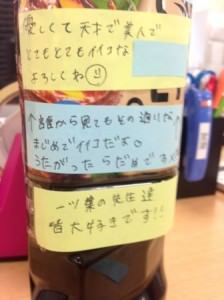 優しくて天才で美人で
とてもとてもイイコな
よろしくね
↑誰から見てもその通りだ
まじめでイイコだよ
うたがったらだめですよ
一ツ葉の先生達
皆大好きです!!